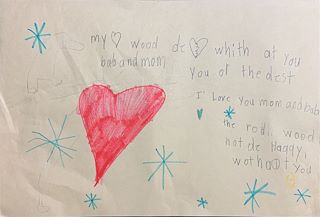 my ♡ wood de 💔 whith at you
bab and mom
you of the dest
I Love you mom and bab
the rodl wood
not de Happy,
wothaot you